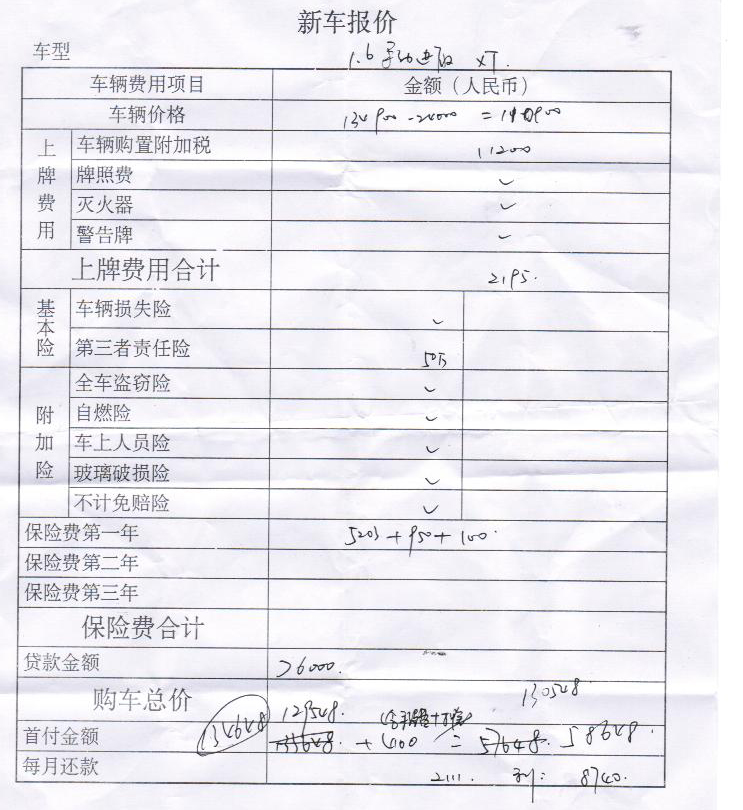 新车报价
车型 1.6 手动进取 XT.
车辆费用项目 金额（人民币）
车辆价格 134900 - 24000 = 110900
上牌费用
车辆购置附加税 11200
牌照费 ✓
灭火器 ✓
警告牌 ✓
上牌费用合计 2195.
基本险
车辆损失险 ✓
第三者责任险 50万
附加险
全车盗窃险 ✓
自燃险 ✓
车上人员险 ✓
玻璃破损险 ✓
不计免赔险 ✓
保险费第一年 5203 + 950 + 100.
保险费第二年
保险费第三年
保险费合计
贷款金额 76000.
购车总价 129548. 130548
首付金额 134648 + = 57648. 58648.
每月还款 2111. 利: 8740.